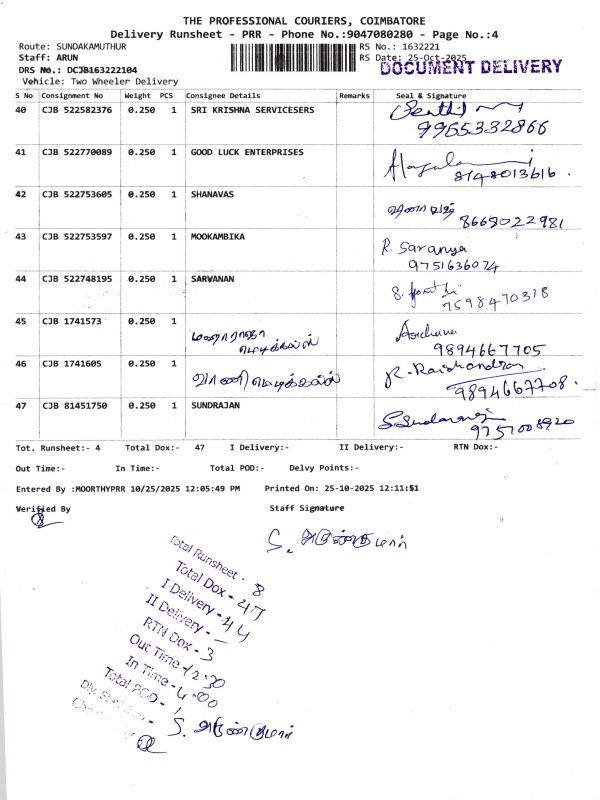 THE PROFESSIONAL COURIERS, COIMBATORE
Delivery Runsheet - PRR - Phone No.:9047080280 - Page No.:4
Route: SUNDAKAMUTHUR RS No.: 1632221
Staff: ARUN RS Date: 25-Oct-2025
DRS No.: DCJB163222104 DOCUMENT DELIVERY
Vehicle: Two Wheeler Delivery
S No Consignment No Weight PCS Consignee Details Remarks Seal & Signature
40 CJB 522582376 0.250 1 SRI KRISHNA SERVICESERS
9965332866
41 CJB 522770089 0.250 1 GOOD LUCK ENTERPRISES
8148013616.
42 CJB 522753605 0.250 1 SHANAVAS
8668022981
43 CJB 522753597 0.250 1 MOOKAMBIKA R. Saranya
9751636074
44 CJB 522748195 0.250 1 SARWANAN
7598470318
45 CJB 1741573 0.250 1
மஹாராஜா
மெடிக்கல்ஸ் 9894667705
46 CJB 1741605 0.250 1 R. Raichandran
வாணி மெடிக்கல்ஸ் 9894667708.
47 CJB 81451750 0.250 1 SUNDRAJAN
9757008920
Tot. Runsheet:- 4 Total Dox:- 47 I Delivery:- II Delivery:- RTN Dox:-
Out Time:- In Time:- Total POD:- Delvy Points:-
Entered By :MOORTHYPRR 10/25/2025 12:05:49 PM Printed On: 25-10-2025 12:11:51
Verified By Staff Signature
S. அருண்குமார்
Total Runsheet - 8
Total Dox - 47
I Delivery - 44
II Delivery - —
RTN Dox - 3
Out Time - 12:30
In Time - 4:00
Total POD -
S. அருண்குமார்